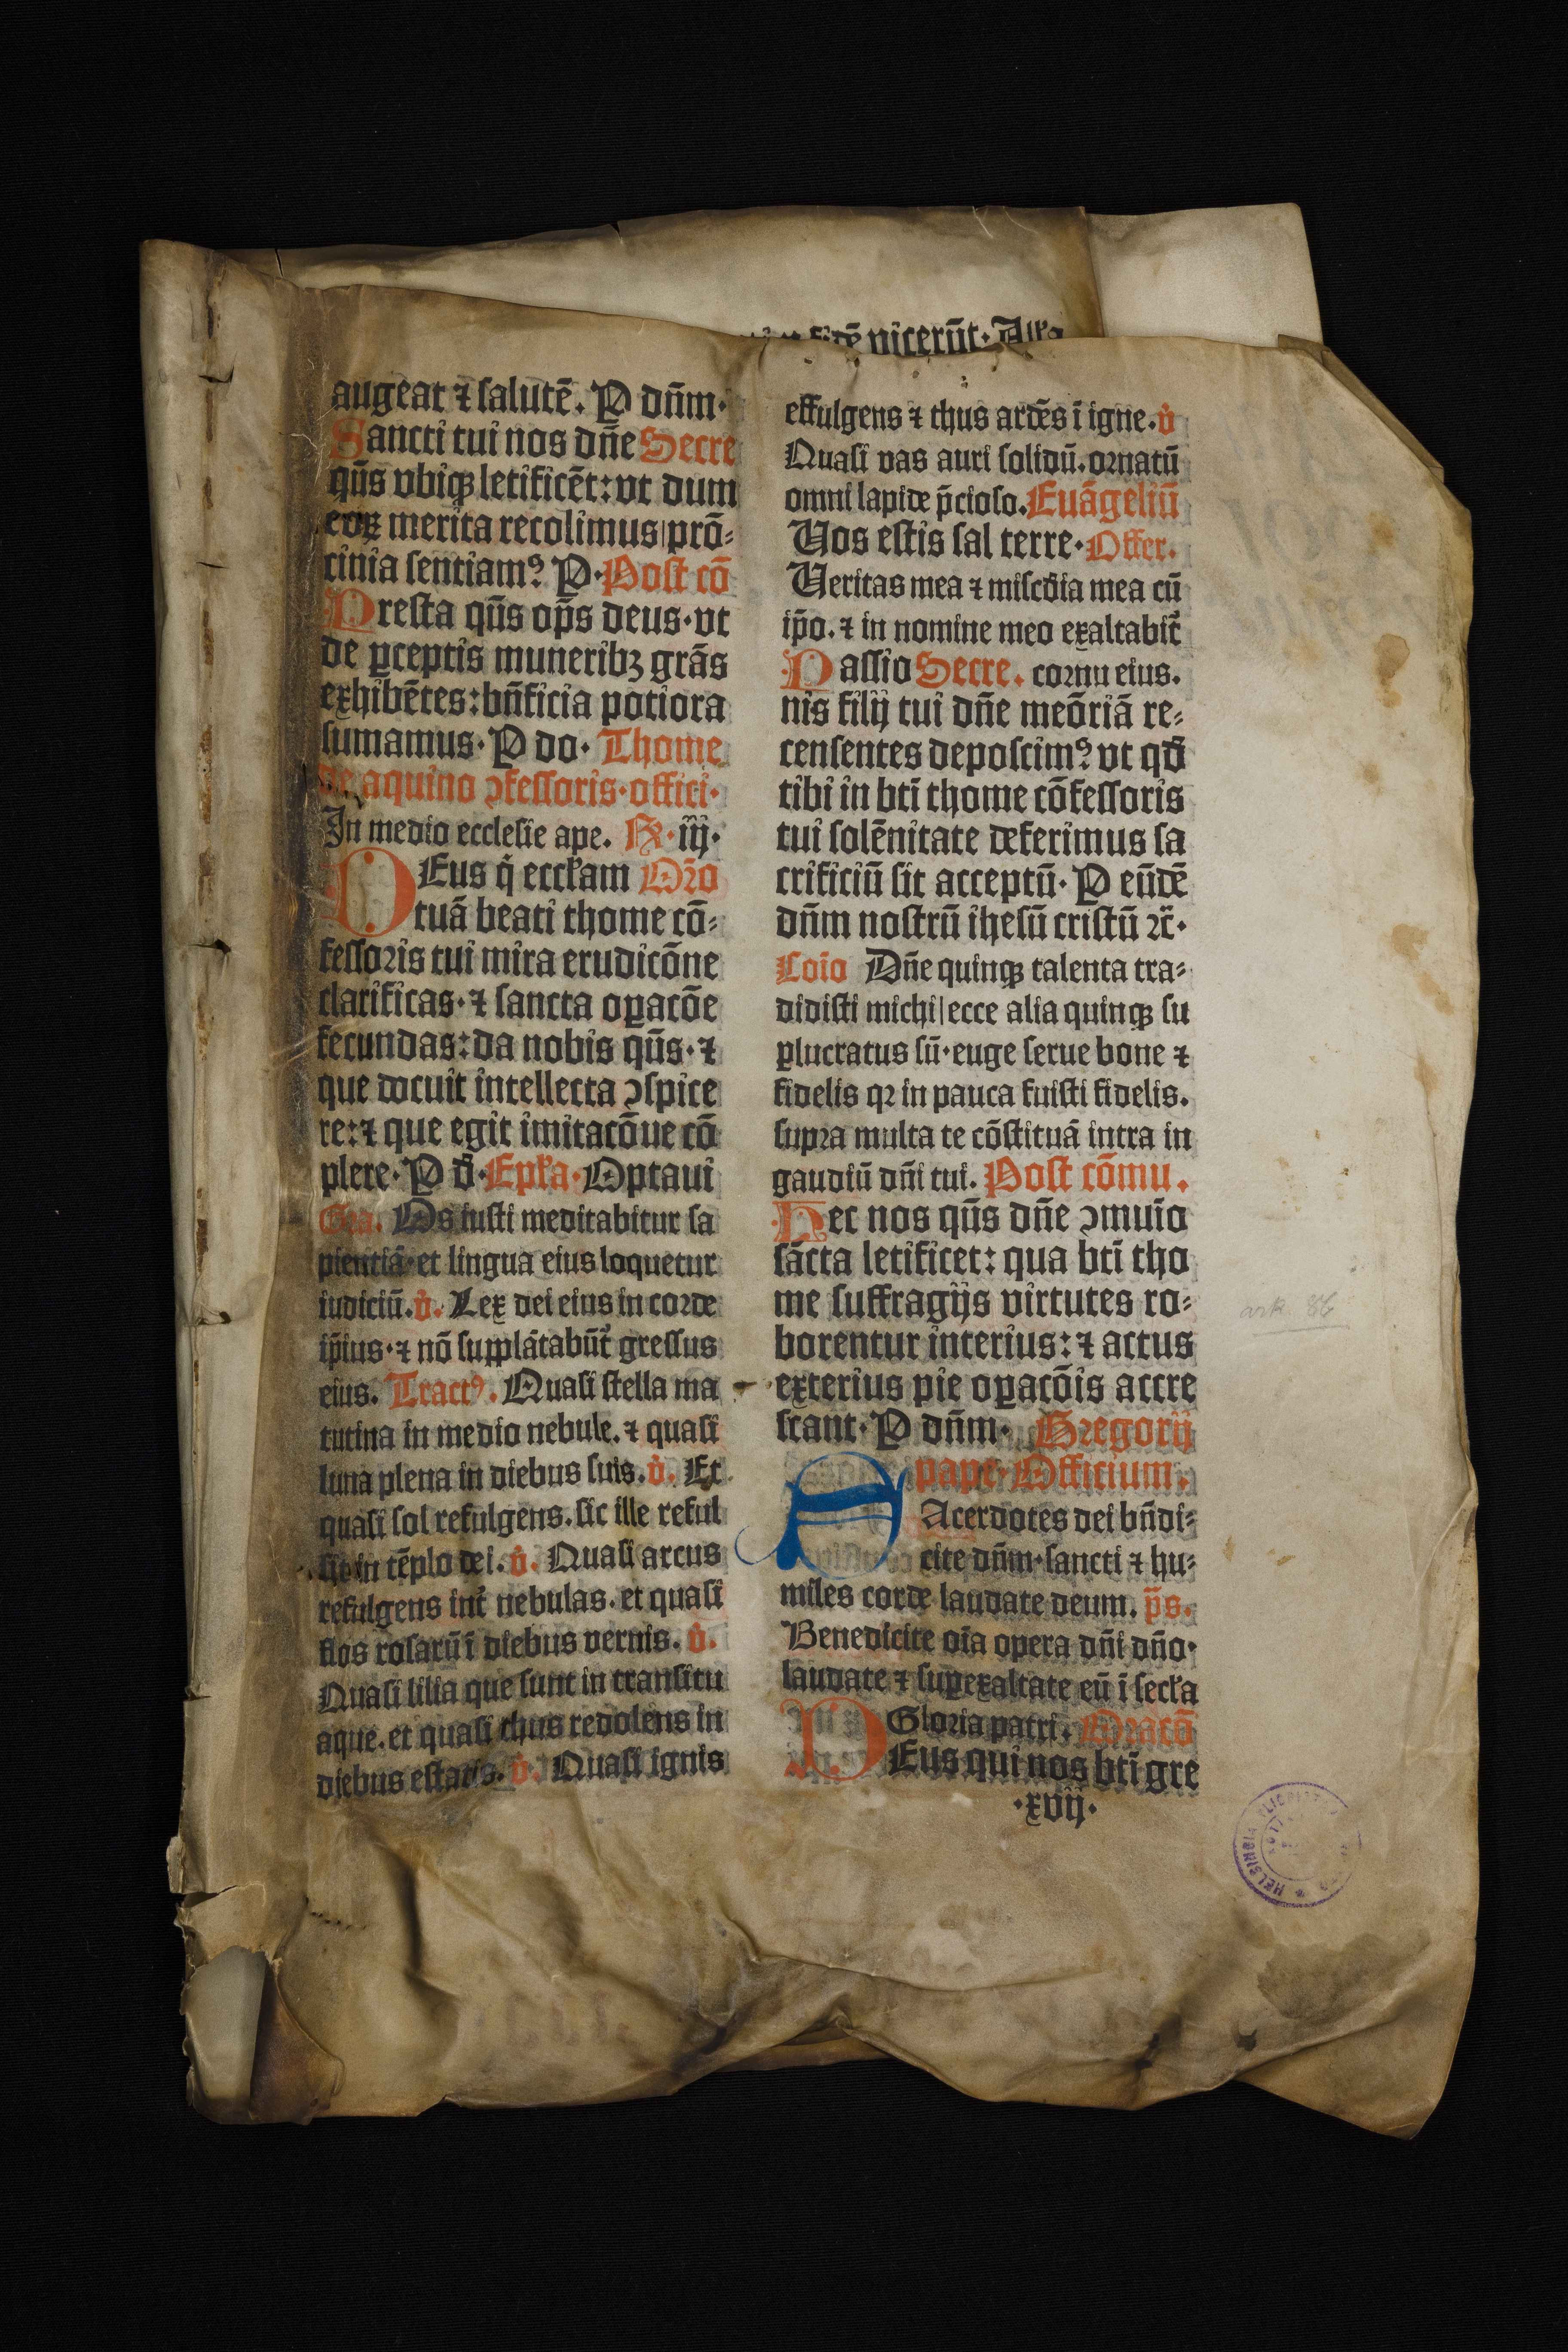 fidē vicerūt· All'a
augeat ⁊ salutē. P dn̄m·
Sancti tui nos dn̄e Secre
qūs vbiqꝫ letificēt: vt dum
eoꝝ merita recolimus|prō⸗
cinia sentiamꝰ P·Post cō
Presta qūs op̄s deus·vt
de ꝑceptis muneribꝫ grās
exhibētes: bn̄ficia potiora
sumamus· P do· Thome
de aquino ꝯfessoris·offici·
In medio ecclesie ape. R· iij·
DEus q̇ eccl'am Or̄o
tuā beati thome cō⸗
fessoris tui mira erudicōne
clarificas·⁊ sancta oꝑacōe
fecundas: da nobis qūs·⁊
que docuit intellecta ꝯspice
re: ⁊ que egit imitacōne cō
plere· P d̄·Epl'a·Optaui
Gra. Os iusti meditabitur sa
pientiā·et lingua eius loquetur
iudiciū. v̇. Lex dei eius in corde
ip̄ius·⁊ nō supplātabūt̄ gressus
eius. Tractꝰ. Quasi stella ma
tutina in medio nebule.⁊ quasi
luna plena in diebus suis. v̇. Et
quasi sol refulgens.sic ille reful
sit in tēplo dei. v̇. Quasi arcus
refulgens int̄ nebulas.et quasi
flos rosarū ī diebus vernis. v̇.
Quasi lilia que sunt in transitu
aque.et quasi thus redolens in
diebus estatis. v̇. Quasi ignis
effulgens ⁊ thus ardēs ī igne. v̇
Quasi vas auri solidū.ornatū
omni lapide p̄cioso. Euāgeliū
Uos estis sal terre· Offer.
Ueritas mea ⁊ misc̄dia mea cū
ip̄o.⁊ in nomine meo exaltabit̄
Passio Secre. cornu eius.
nis filij tui dn̄e meōriā re⸗
censentes deposcimꝰ vt qd̄
tibi in btī thome cōfessoris
tui solēnitate deferimus sa
crificiū sit acceptū· P eūdē
dn̄m nostrū ihesū cristū ⁊c̄·
Coīo Dn̄e quinqꝫ talenta tra⸗
didisti michi|ecce alia quinqꝫ su
ꝑlucratus sū·euge serue bone ⁊
fidelis qꝛ in pauca fuisti fidelis.
supra multa te cōstituā intra in
gaudiū dn̄i tui. Post cōmu.
Hec nos qūs dn̄e ꝯmuīo
sācta letificet: qua btī tho
me suffragijs virtutes ro⸗
borentur interius: ⁊ actus
exterius pie oꝑacōis accre
scant· P dn̄m· Gregorij
pape·Officium.
SAcerdotes dei bn̄di⸗
cite dn̄m·sancti ⁊ hu⸗
miles corde laudate deum. p̄s.
Benedicite oīa opera dn̄i dn̄o·
laudate ⁊ suꝑexaltate eū ī secl'a
Gloria patri. Oracō
DEus qui nos btī gre
·xvij·
ark. 86
HELSINGIN YLIOPISTON